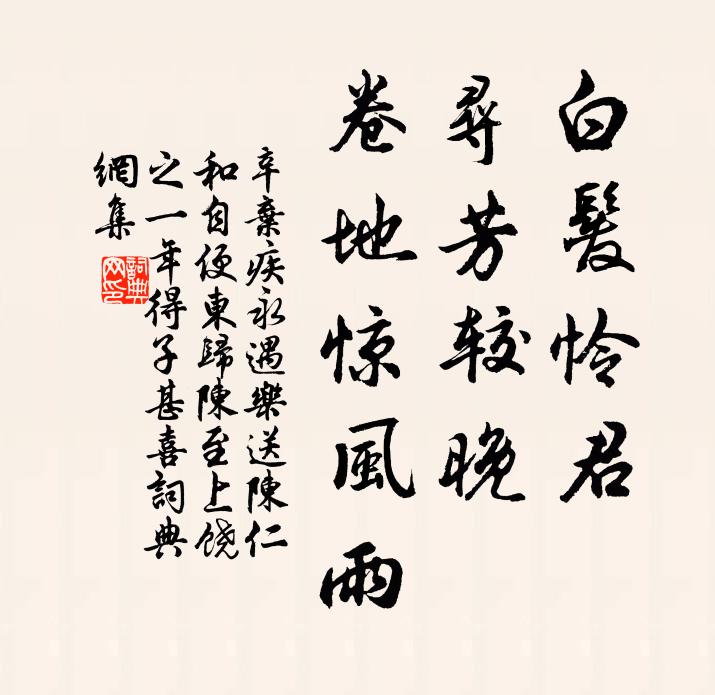 白髮怜君
尋芳較晚
卷地惊風雨
辛棄疾永遇樂送陳仁
和自便東歸陳至上饶
之一年得子甚喜詞典
網集
詞典網印